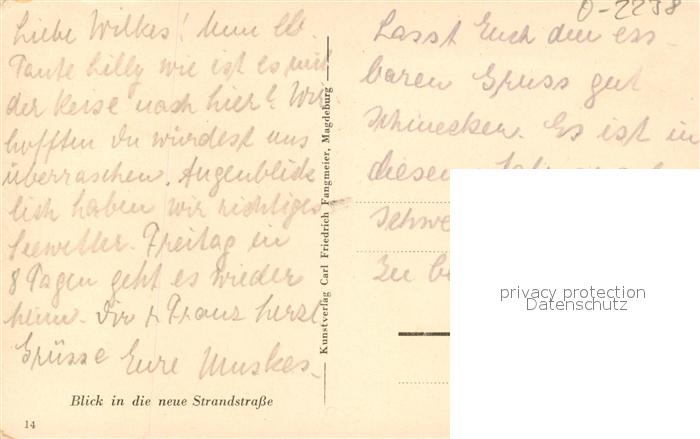 Liebe Wilkes! Nun lb.
Tante Lilly wie ist es mit
der Reise nach hier? Wir
hofften Du würdest uns
überraschen. Augenblick
lich haben wir richtiges
Seewetter. Freitag in
8 Tagen geht es wieder
heim. Dir & Franz herzl.
Grüsse Eure Muskes.
Blick in die neue Strandstraße
14
Kunstverlag Carl Friedrich Fangmeier, Magdeburg
0-2238
Lasst Euch den ess-
baren Gruss gut
schmecken. Es ist in
diesem
schwe
Zu be
privacy protection
Datenschutz